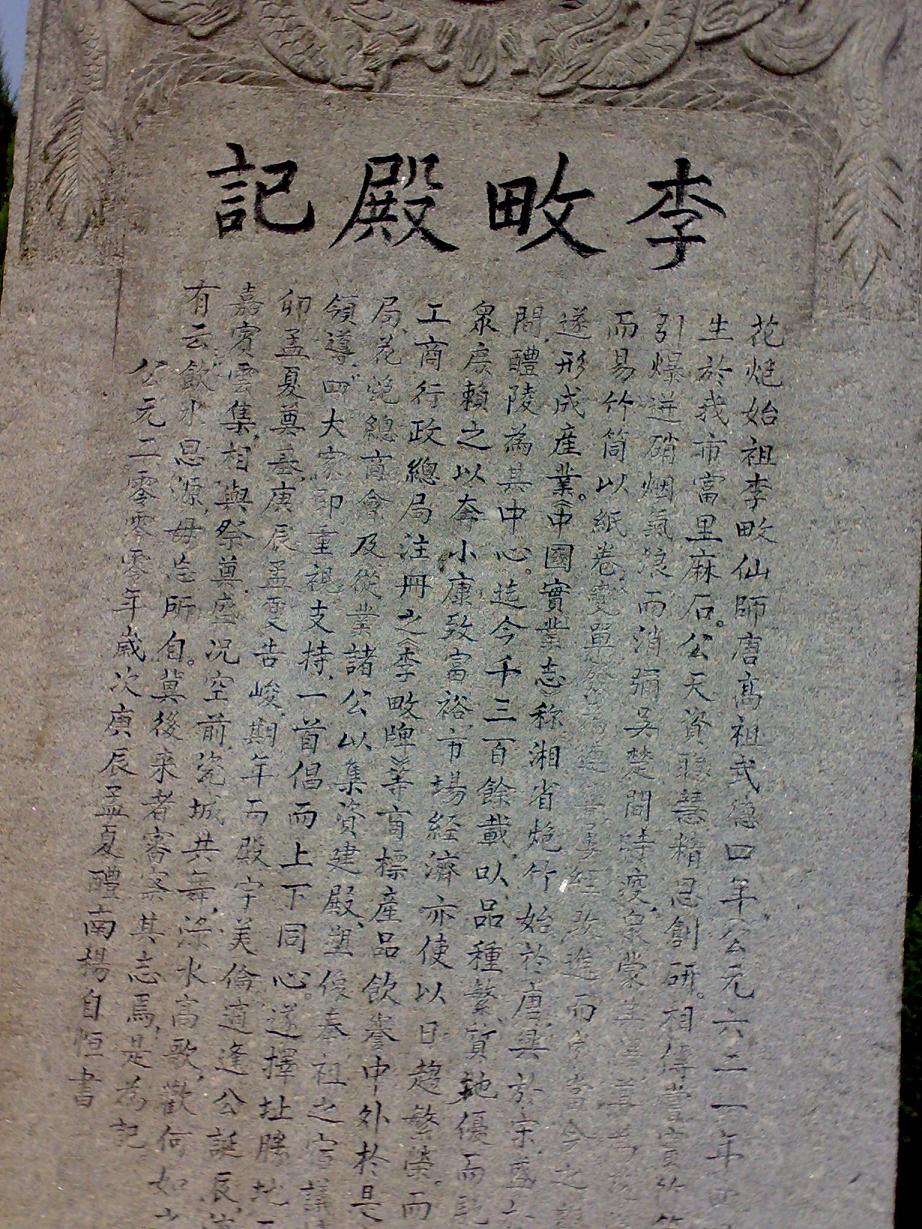 李畋殿記
花炮始祖李畋仙師唐高祖武德四年公元六二一年四
生於我市富里麻石。公天資聰慧精思創研。相傳嘗實竹
引爆迸硝烟氣浪而消彌吳楚間時疫,衆蒙
而易竹筒以紙卷,變單發為連 經改進而 當今之
遂形成産業。《中國實業志》称湘省炮竹始於唐,興於宋,盛
間,醴陵為其中心。迄今千三百餘載,以品種繁,質地優而
衆庶賴之以奔小康致富裕,市場经濟亦使以日趨繁榮。而
工商行政總局注冊之《李畋牌》等商標産品飲譽中外於是
局、花炮總商會及從業諸公以集資建殿,塑 奉祖之宿議
領導,四大家即重視支持,一首倡而上下同心。遂擇址勝地
卯孟夏奠基,庚辰孟夏告峻,期年而殿宇美倫,適逢公誕辰,
嘉賓雲集,相與祭奠,盛况空前,瓷城共舞,淥水高歌,歡何如
有云飲水思源,毋忘所自。冀後来者審察其志焉,是為記
公元二零零零年歲次庚辰孟夏醴南楊自恒書